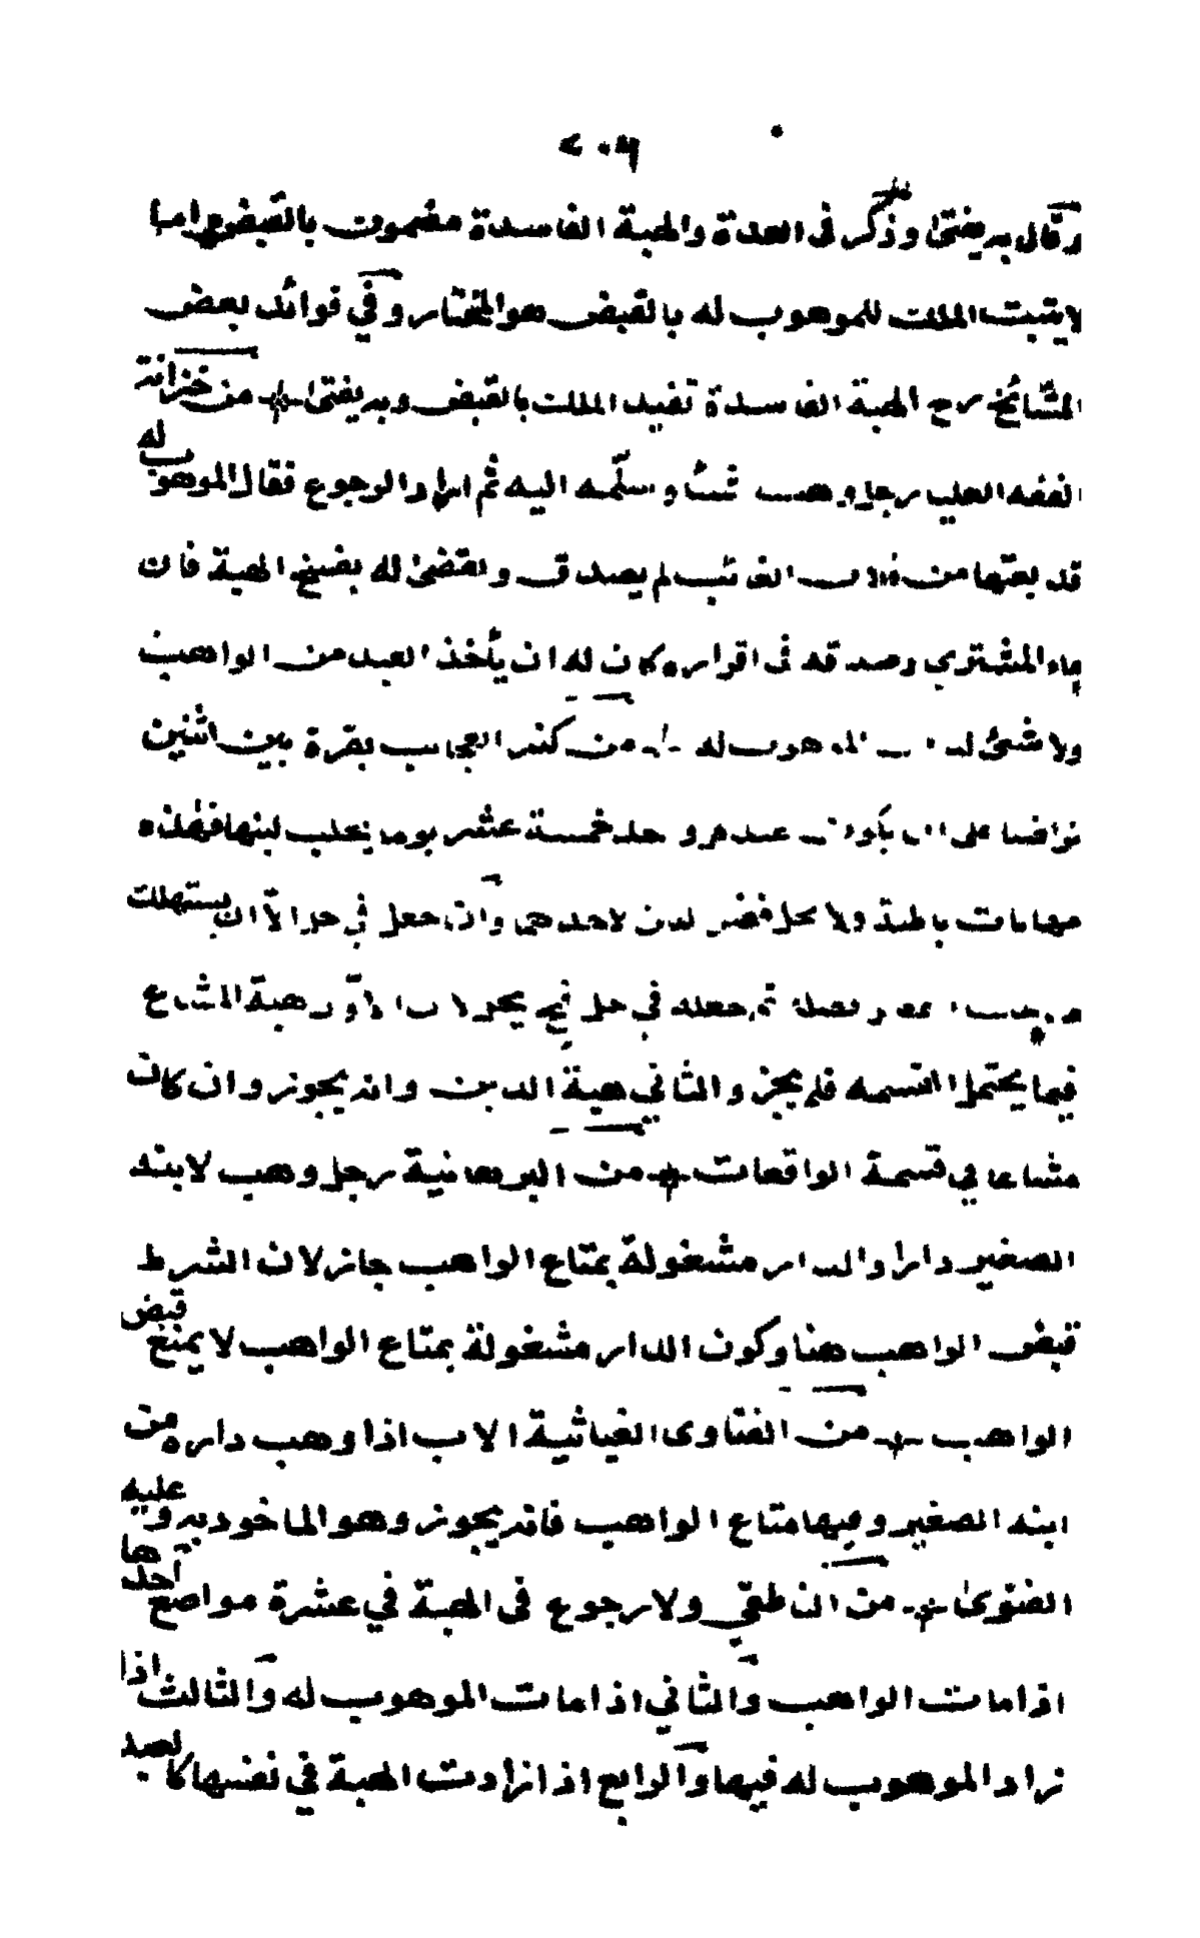 ٢٠٩
وقال به يفتى وذكر في العدة والهبة الفاسدة مضمون بالقبض اما
لا يثبت الملك للموهوب له بالقبض هو المختار وفي فوائد بعض
المشائخ رح الهبة الفاسدة تفيد الملك بالقبض وبه يفتى من خزانة
الفقه رجل وهب شيئا وسلمه اليه ثم اراد الرجوع فقال الموهوب له
قد بعتها من فلان الغائب لم يصدق ويقضى له بفسخ الهبة فان
جاء المشترى وصدقه في اقراره كان له ان يأخذ العبد من الواهب
ولا شئ له الموهوب له من كتب العجائب بقرة بين اثنين
تواضعا على ان يكون عند هرو حد خمسة عشر يوما يحلب لبنها فهذه
مهايات باطلة ولا يحل فضل لبن لاحدهما وان جعل في حل الا ان يستهلك
صاحب ثم جعله في حل فح يحل لان الاول هبة المشاع
فيما يحتمل القسمه فلم يجز والثاني هبة الدين وانه يجوز وان كان
مشاعا في قسمة الواقعات من البرهانية رجل وهب لابنه
الصغير دارا والدار مشغولة بمتاع الواهب جاز لان الشرط
قبض الواهب هنا وكون الدار مشغولة بمتاع الواهب لا يمنع قبض
الواهب من الفتاوى الغياثية الاب اذا وهب داره من
ابنه الصغير وفيها متاع الواهب فانه يجوز وهو الماخوذ به وعليه
الفتوى من الناطقي ولا رجوع في الهبة في عشرة مواضع احدها
اذا مات الواهب والثاني اذا مات الموهوب له والثالث اذا
زاد الموهوب له فيها والرابع اذا زادت الهبة في نفسها كالعبد